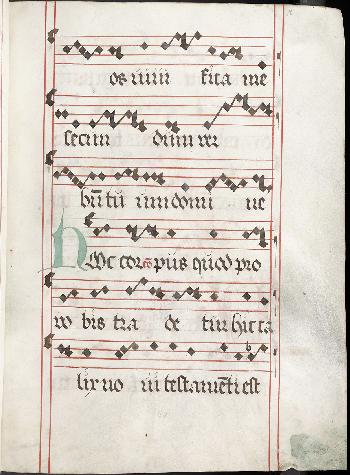 os uiui fica me
secun dum ver
bū tū um domi ne
Hoc corpus quod pro
vo bis tra de tur hic ca
lix no ui testamēti est